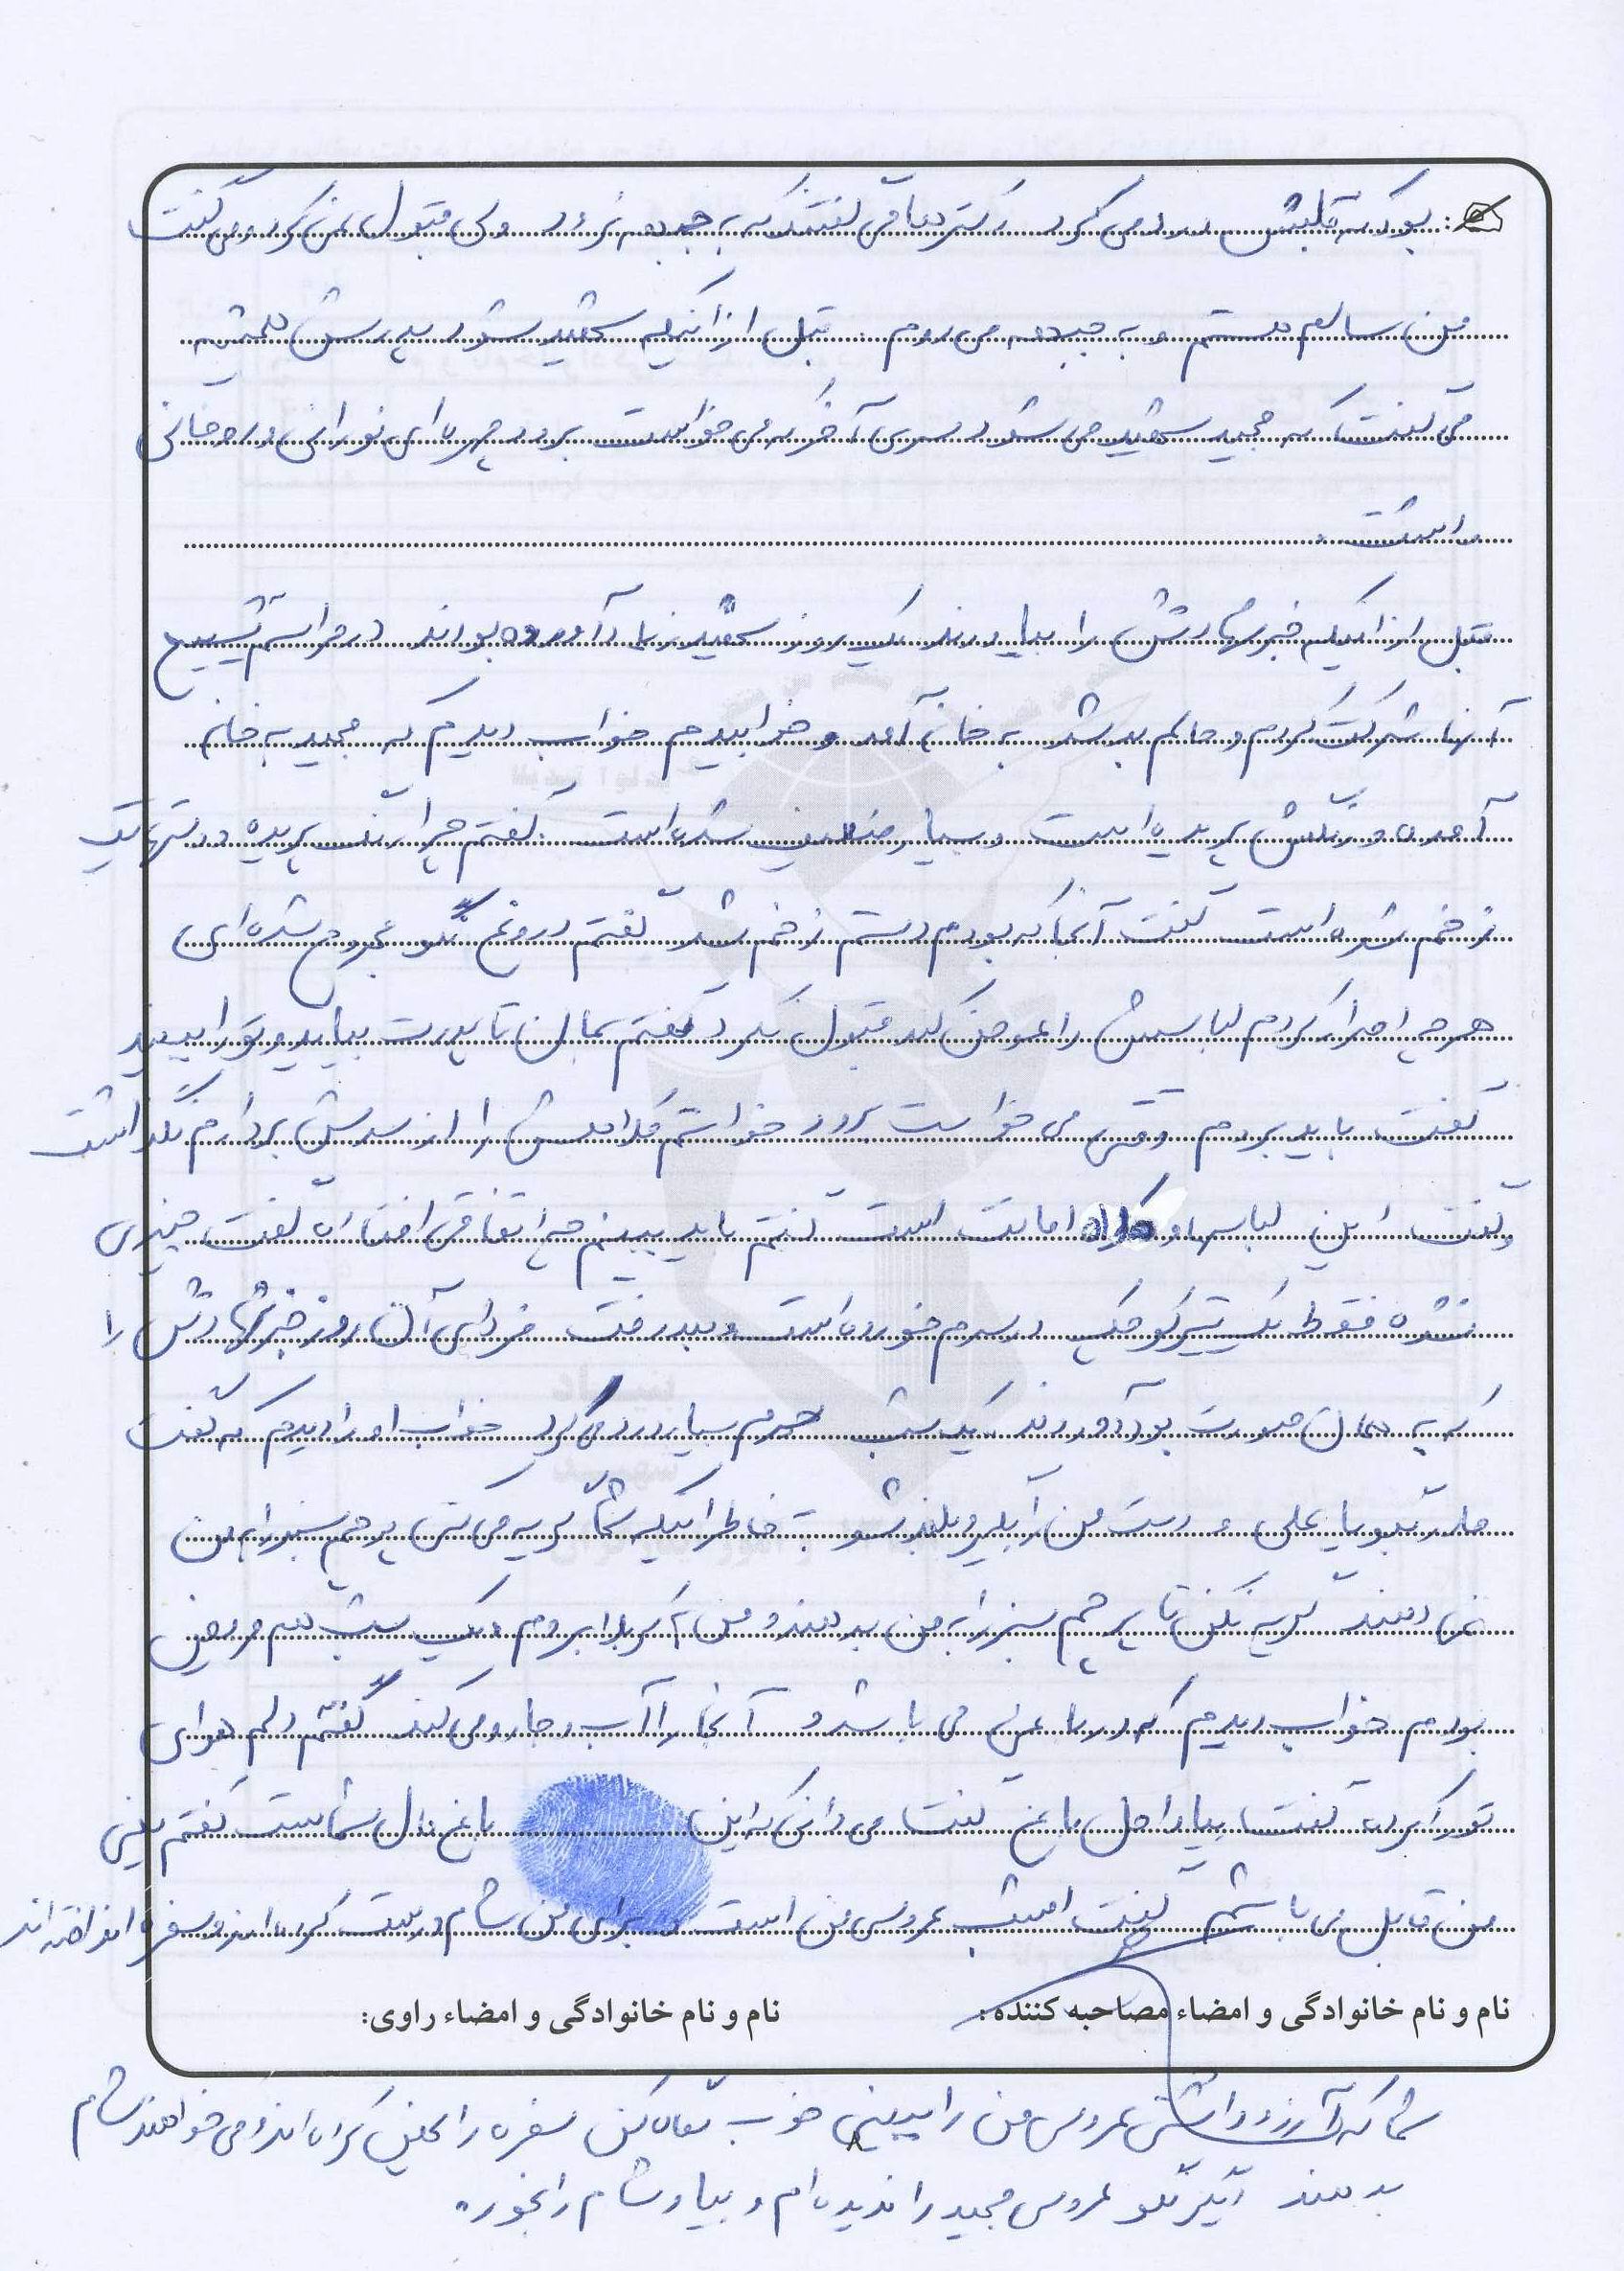 بود که قلبش درد می کرد دکترها می گفتند که به جبهه نرود ولی قبول نمی کرد و می گفت
من سالم هستم و به جبهه می روم. قبل از اینکه شهید شود پدرش همیشه
می گفت که مجید شهید می شود سری آخر که می خواست برود چهره ای نورانی و روحانی
داشت.
قبل از اینکه خبر شهادتش را بیاورند یک روز شهید زیاد آورده بودند در مراسم تشییع
آنها شرکت کردم و حالم بد شد به خانه آمد و خوابیدم خواب دیدم که مجید به خانه
آمده و رنگش پریده است و بسیار ضعیف شده است. گفتم چرا رنگت پریده و دستهایت
زخم شده است گفت آنجا که بودم دستم زخم شد گفتم دروغ نگو مجروح شده ای
هر چه اصرار کردم لباسش را عوض کند قبول نکرد گفتم بمان تا پدرت بیاید و تو را ببیند
گفت باید بروم وقتی می خواست برود خواستم کلاهش را از سرش بردارم نگذاشت
و گفت این لباسها و کلاه امانت است گفتم باید ببینم چه اتفاقی افتاده گفت چیزی
نشده فقط یک تیر کوچک در سرم خورده است و بعد رفت فردای آن روز خبر شهادتش را
که به همان صورت بود آوردند. یک شب سرم بسیار درد می کرد خواب او را دیدم که گفت
مادر بگو یا علی و دست من را بگیر و بلند شو به خاطر اینکه شما گریه می کنی پرچم سبز را به من
نمی دهند گریه نکن تا پرچم سبز را به من بدهند و من به کربلا بروم و یک شب هم مریض
بودم خواب دیدم که در باغی می باشد و آنجا را آب و جارو می کند گفتم دلم هوای
تو را کرده گفت بیا داخل باغ گفت می دانی که این باغ مال شماست گفتم یعنی
من قابل می باشم گفت امشب عروسی من است و برای من شام درست کرده اند و سفره انداخته اند
نام و نام خانوادگی و امضاء مصاحبه کننده: نام و نام خانوادگی و امضاء راوی:
شما که آرزو داشتی عروسی من را ببینی خوب نگاه کن سفره را پهن کرده اند و می خواهند شام
بدهند دیگر نگو عروسی مجید را ندیده ام و بیا و شام را بخور.